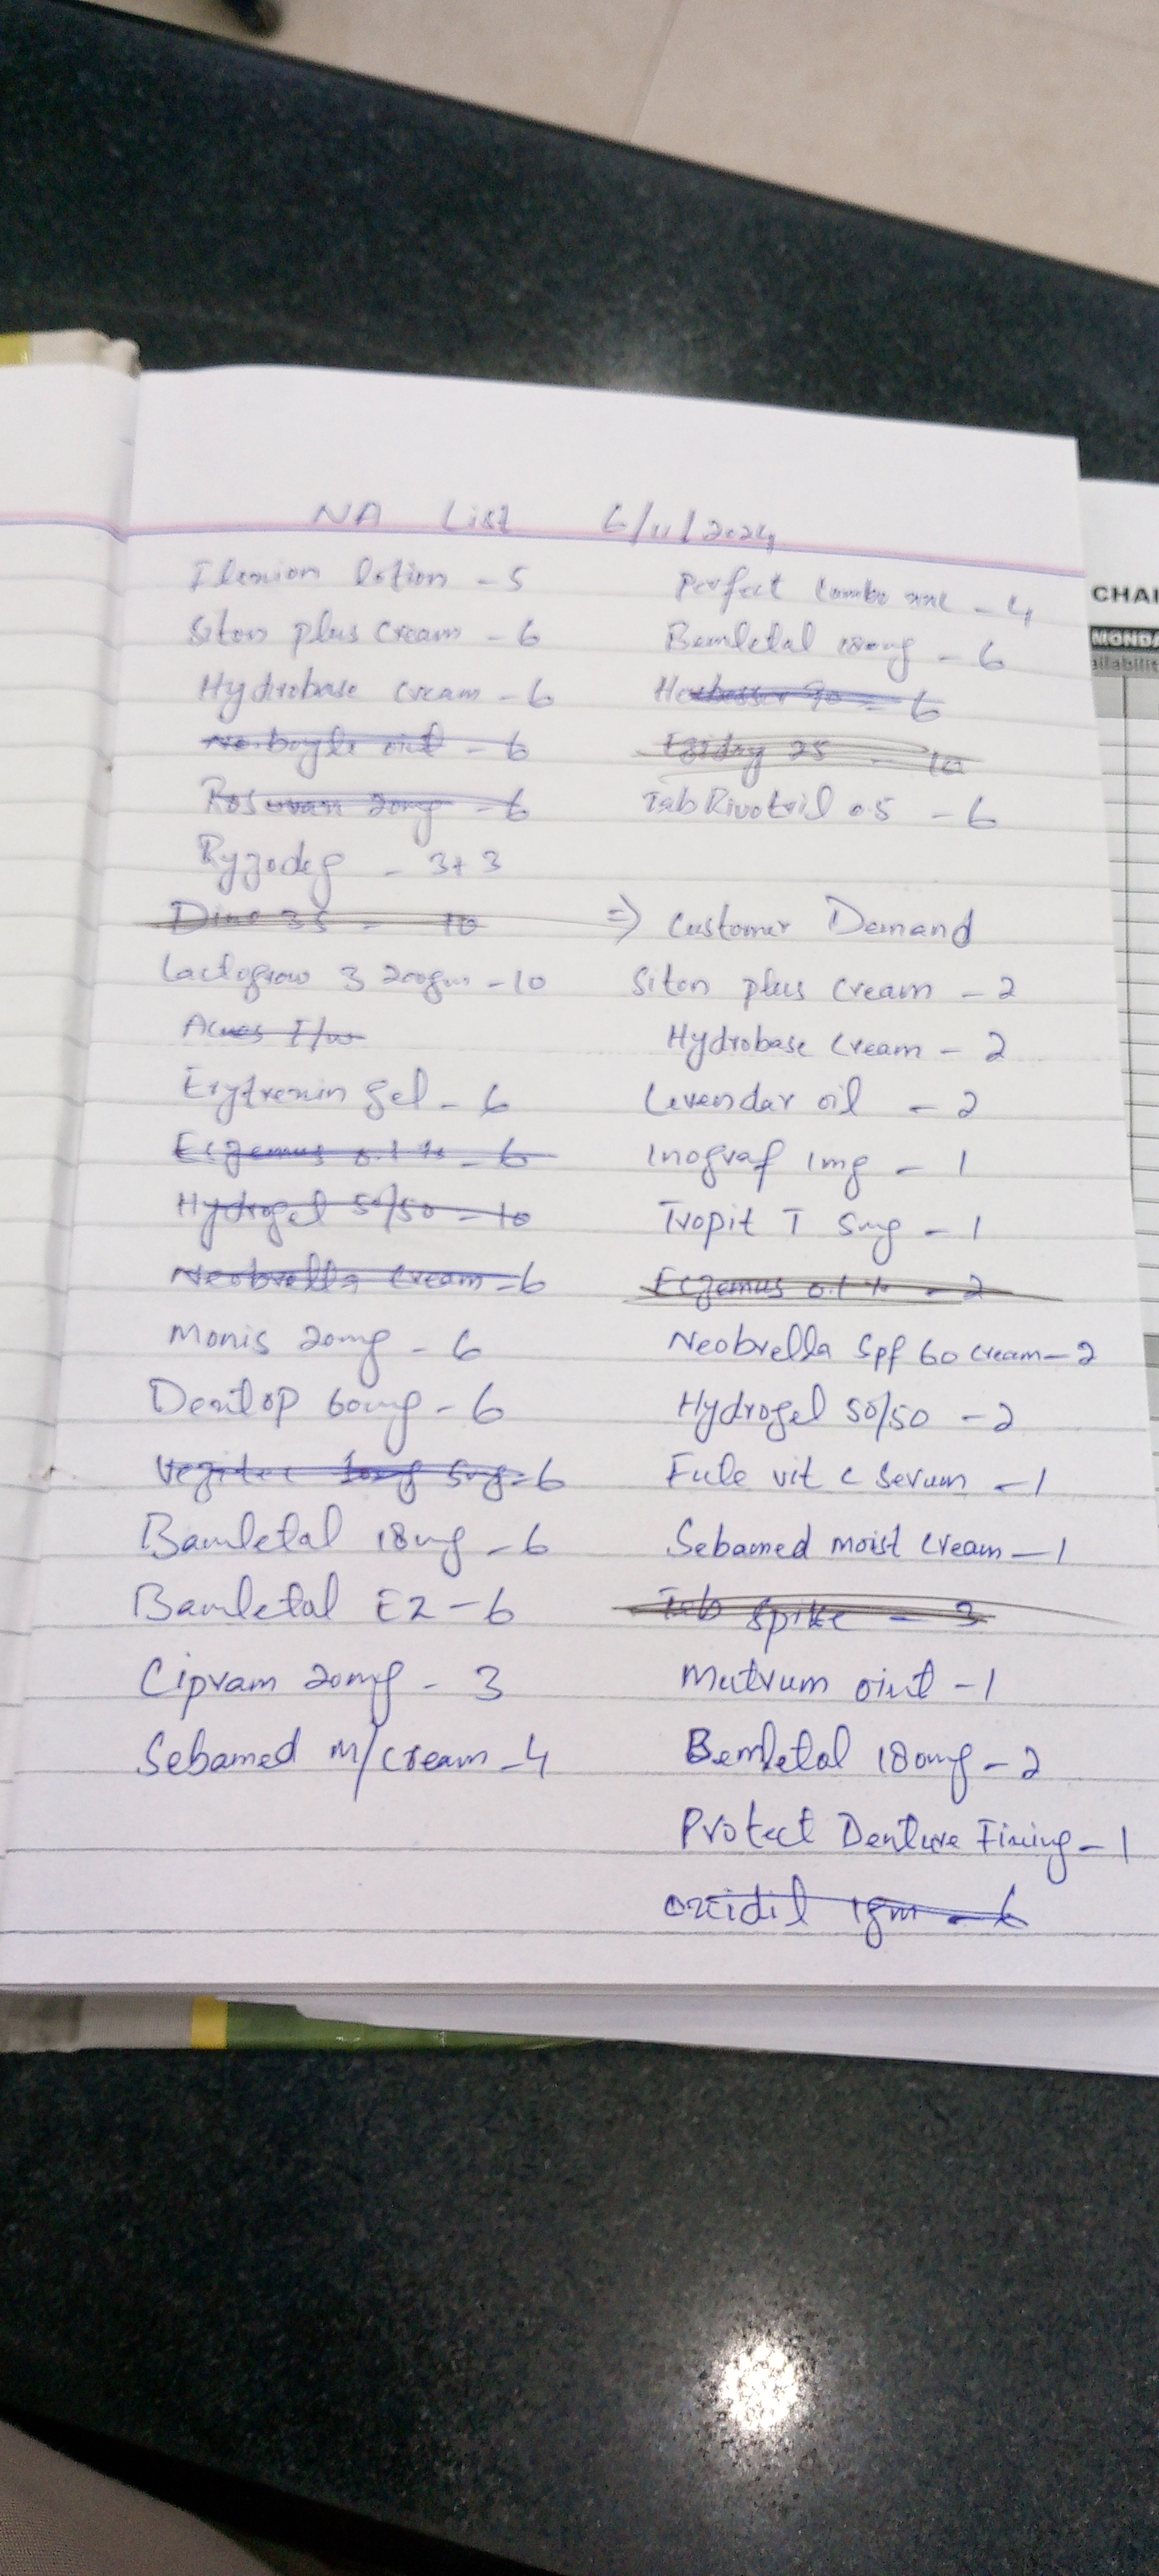 NA List 6/11/2024
lotion - 5
Siton plus cream - 6
Hydrobase cream - 6
oint - 6
Rosuvan 20mg - 6
Ryzodeg - 3+3
35 - 10
Lactogrow 3 200gm - 10
Acnes F/w
gel - 6
Eczemus 0.1% - 6
Hydrogel 50/50 - 10
Neobrella cream - 6
Monis 20mg - 6
60mg - 6
5mg - 6
18mg - 6
E2 - 6
Cipram 20mg - 3
Sebamed m/cream - 4
Perfect Combo xxl - 4
180mg - 6
Herbesser 90 - 6
25 - 10
Tab Rivotril 0.5 - 6
=> Customer Demand
Siton plus cream - 2
Hydrobase cream - 2
Levendar oil - 2
Inograf 1mg - 1
Tropit T 5mg - 1
Eczemus 0.1% - 2
Neobrella Spf 60 cream - 2
Hydrogel 50/50 - 2
vit c Serum - 1
Sebamed moist cream - 1
Tab Spike - 3
oint - 1
180mg - 2
Protect Denture Fixing - 1
1gm - 6
CHAI
MONDA
ailabilit